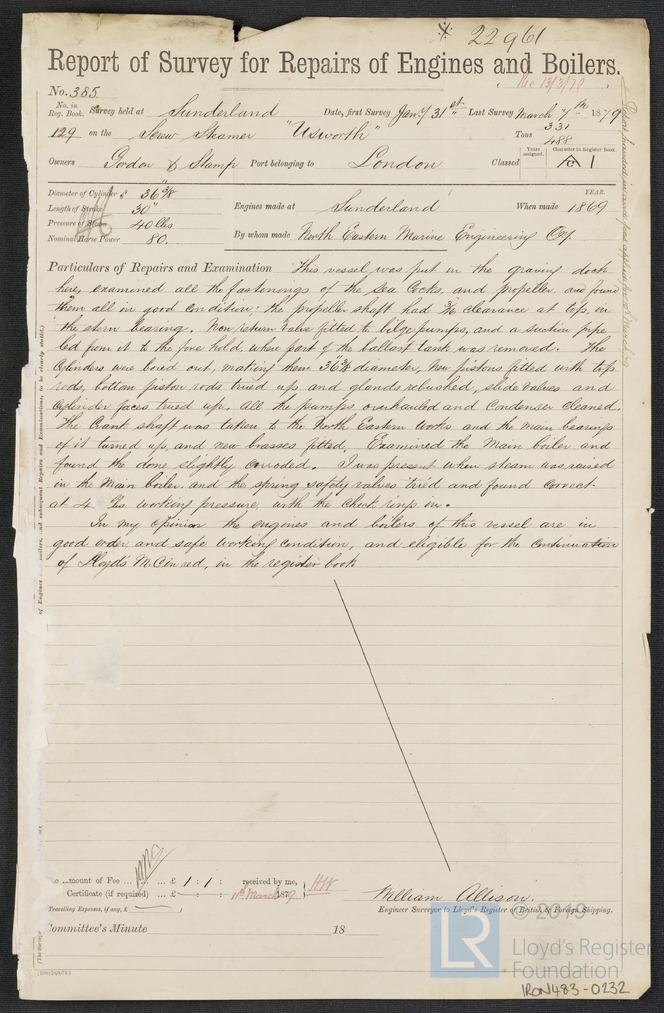 22961
Report of Survey for Repairs of Engines and Boilers.
Rec 13/3/79
No. 385
No. in Reg. Book. Survey held at Sunderland Date, first Survey Jany 31st Last Survey March 7th 1879
129 on the Screw Steamer "Usworth" Tons 331 488
Owners Gordon & Stamp Port belonging to London Classed Years assigned. Character in Register Book. A 1
Diameter of Cylinders 36 3/8"
Length of Stroke 30"
Pressure of Steam 40 lbs
Nominal Horse Power 80.
Engines made at Sunderland When made YEAR. 1869
By whom made North Eastern Marine Engineering Coy.
Particulars of Repairs and Examination This vessel was put in the graving dock
here, examined all the fastenings of the sea cocks, and propeller, and found
them all in good condition; the propeller shaft had 3/16 clearance at top, in
the stern bearing. Non return valve fitted to bilge pumps, and a suction pipe
led from it to the fore hold, when part of the ballast tank was removed. The
Cylinders were bored out, making them 36 3/8" diameter, New pistons fitted with top
rods, bottom piston rods trued up and glands rebushed, slide valves and
cylinder faces trued up. All the pumps overhauled and Condenser cleaned.
The Crank shaft was taken to the North Eastern Works and the main bearings
of it turned up, and new brasses fitted. Examined the Main boiler and
found the dome slightly corroded. I was present when steam was raised
in the Main boiler, and the spring safety valves tried and found correct
at 4 lbs working pressure, with the check rings on.
In my opinion the engines and boilers of this vessel are in
good order and safe working condition, and eligible for the continuation
of Lloyd's M.C in red, in the register book
Amount of Fee ... £ 1 : 1 : received by me,
Certificate (if required) ... £ : : 11th March 1879
Travelling Expenses, if any, £
William Allison
Engineer Surveyor to Lloyd's Register of British & Foreign Shipping.
Committee's Minute 18
© 2019
LR
Lloyd's Register
Foundation
IRON483-0232